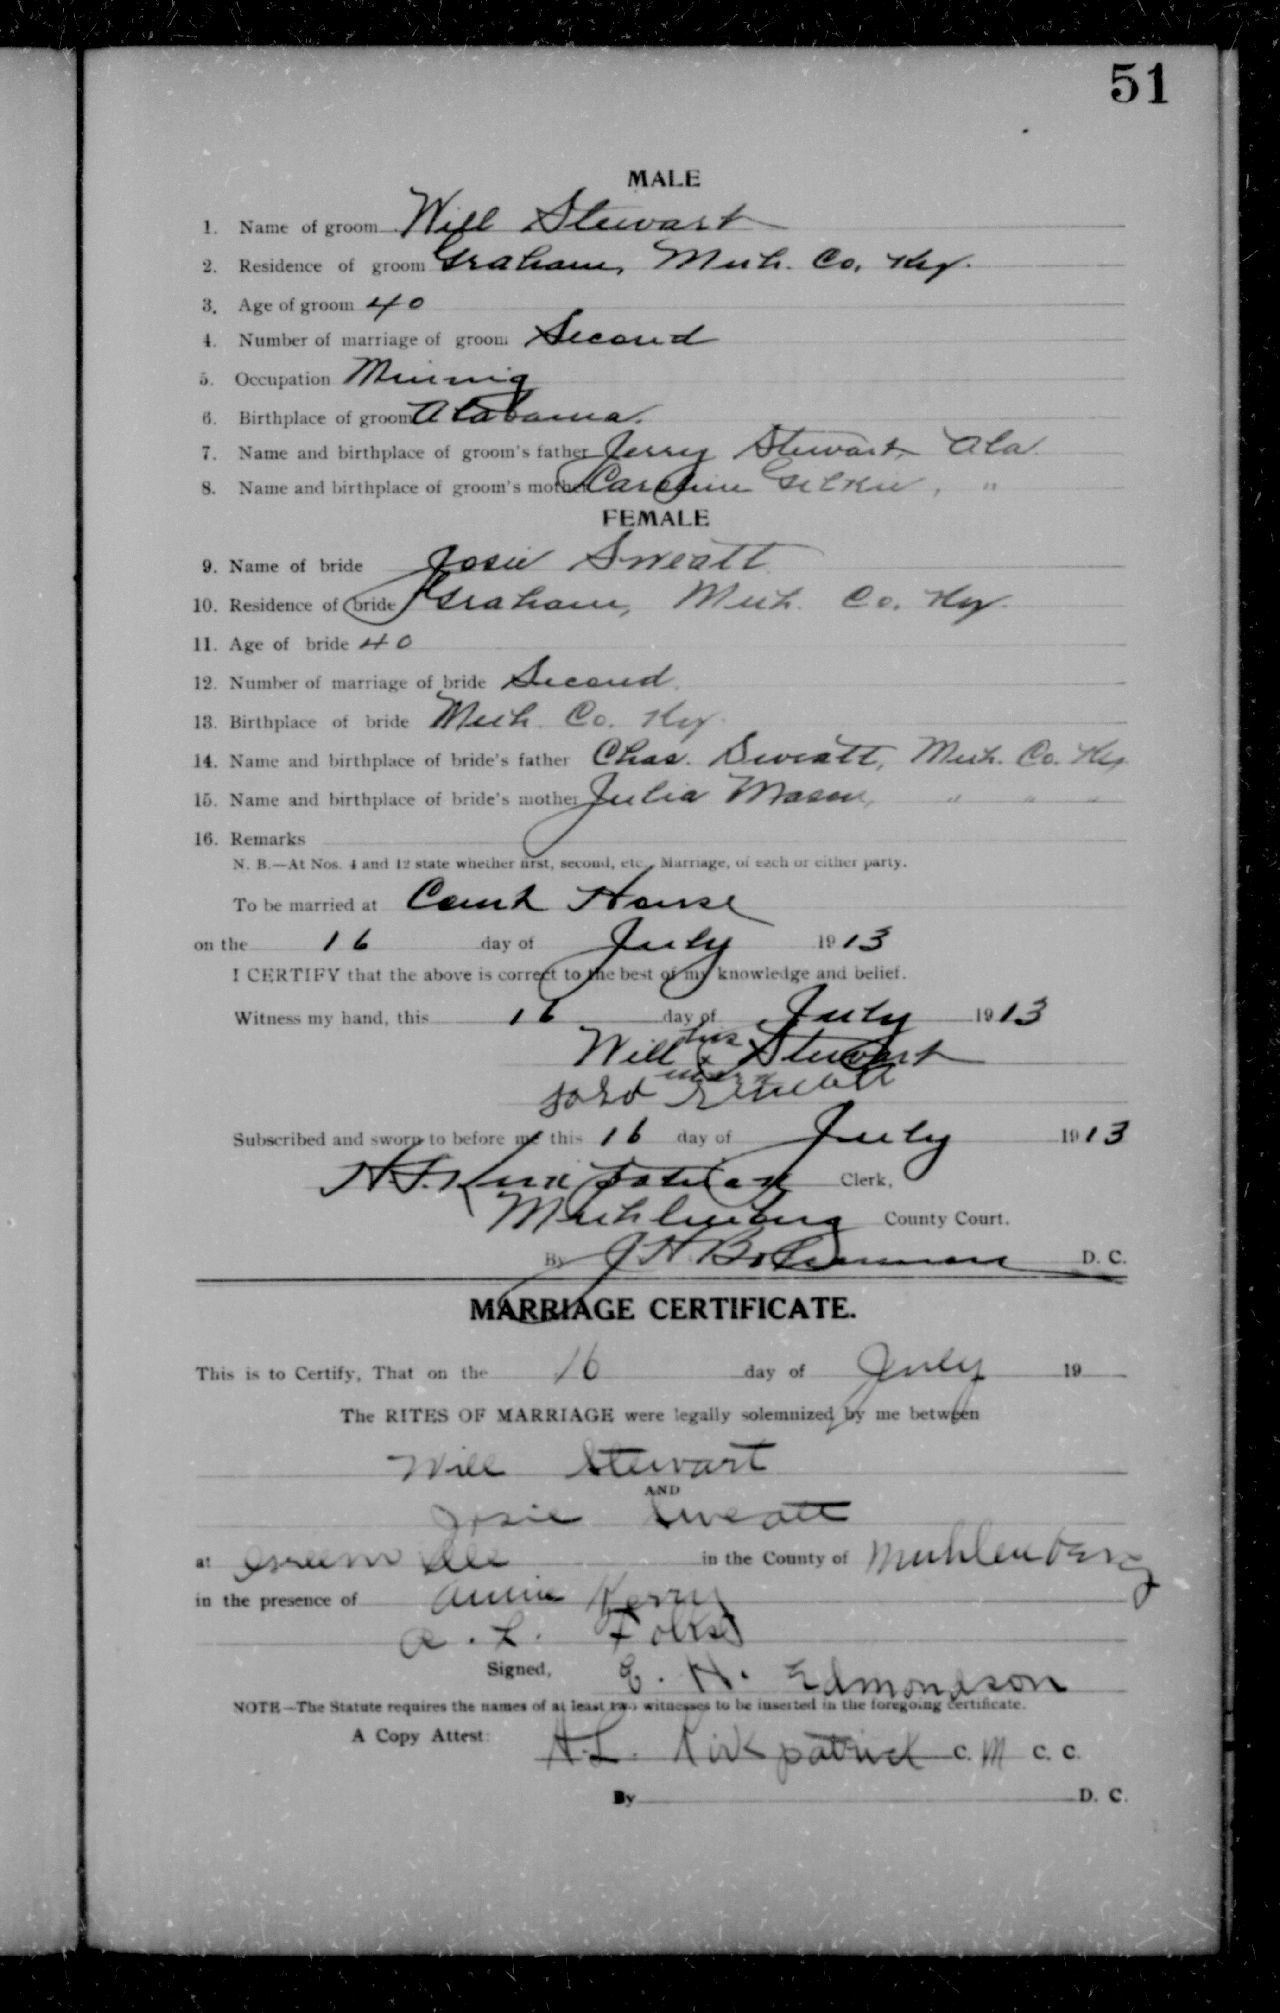 51
MALE
1. Name of groom Will Stewart
2. Residence of groom Graham, Muh. Co, Ky.
3. Age of groom 40
4. Number of marriage of groom Second
5. Occupation Mining
6. Birthplace of groom Alabama.
7. Name and birthplace of groom's father Jerry Stewart, Ala.
8. Name and birthplace of groom's mother Caroline , "
FEMALE
9. Name of bride Josie Sweatt
10. Residence of bride Graham, Muh. Co. Ky.
11. Age of bride 40
12. Number of marriage of bride Second.
13. Birthplace of bride Muh. Co. Ky.
14. Name and birthplace of bride's father Chas. Sweatt, Muh. Co. Ky
15. Name and birthplace of bride's mother Julia Mason, " " "
16. Remarks
N. B.—At Nos. 4 and 12 state whether first, second, etc., Marriage, of each or either party.
To be married at Court House
on the 16 day of July 1913
I CERTIFY that the above is correct to the best of my knowledge and belief.
Witness my hand, this 16 day of July 1913
his
Will x Stewart
mark
Subscribed and sworn to before me this 16 day of July 1913
Kirkpatrick Clerk,
Muhlenberg County Court.
By J H. D. C.
MARRIAGE CERTIFICATE.
This is to Certify, That on the 16 day of July 19
The RITES OF MARRIAGE were legally solemnized by me between
Will Stewart
AND
Josie Sweatt
at in the County of Muhlenberg
in the presence of Annie Kerry
A. L. Folks
Signed, E. H. Edmondson
NOTE—The Statute requires the names of at least two witnesses to be inserted in the foregoing certificate.
A Copy Attest: H.L. Kirkpatrick C. M C. C.
By D. C.